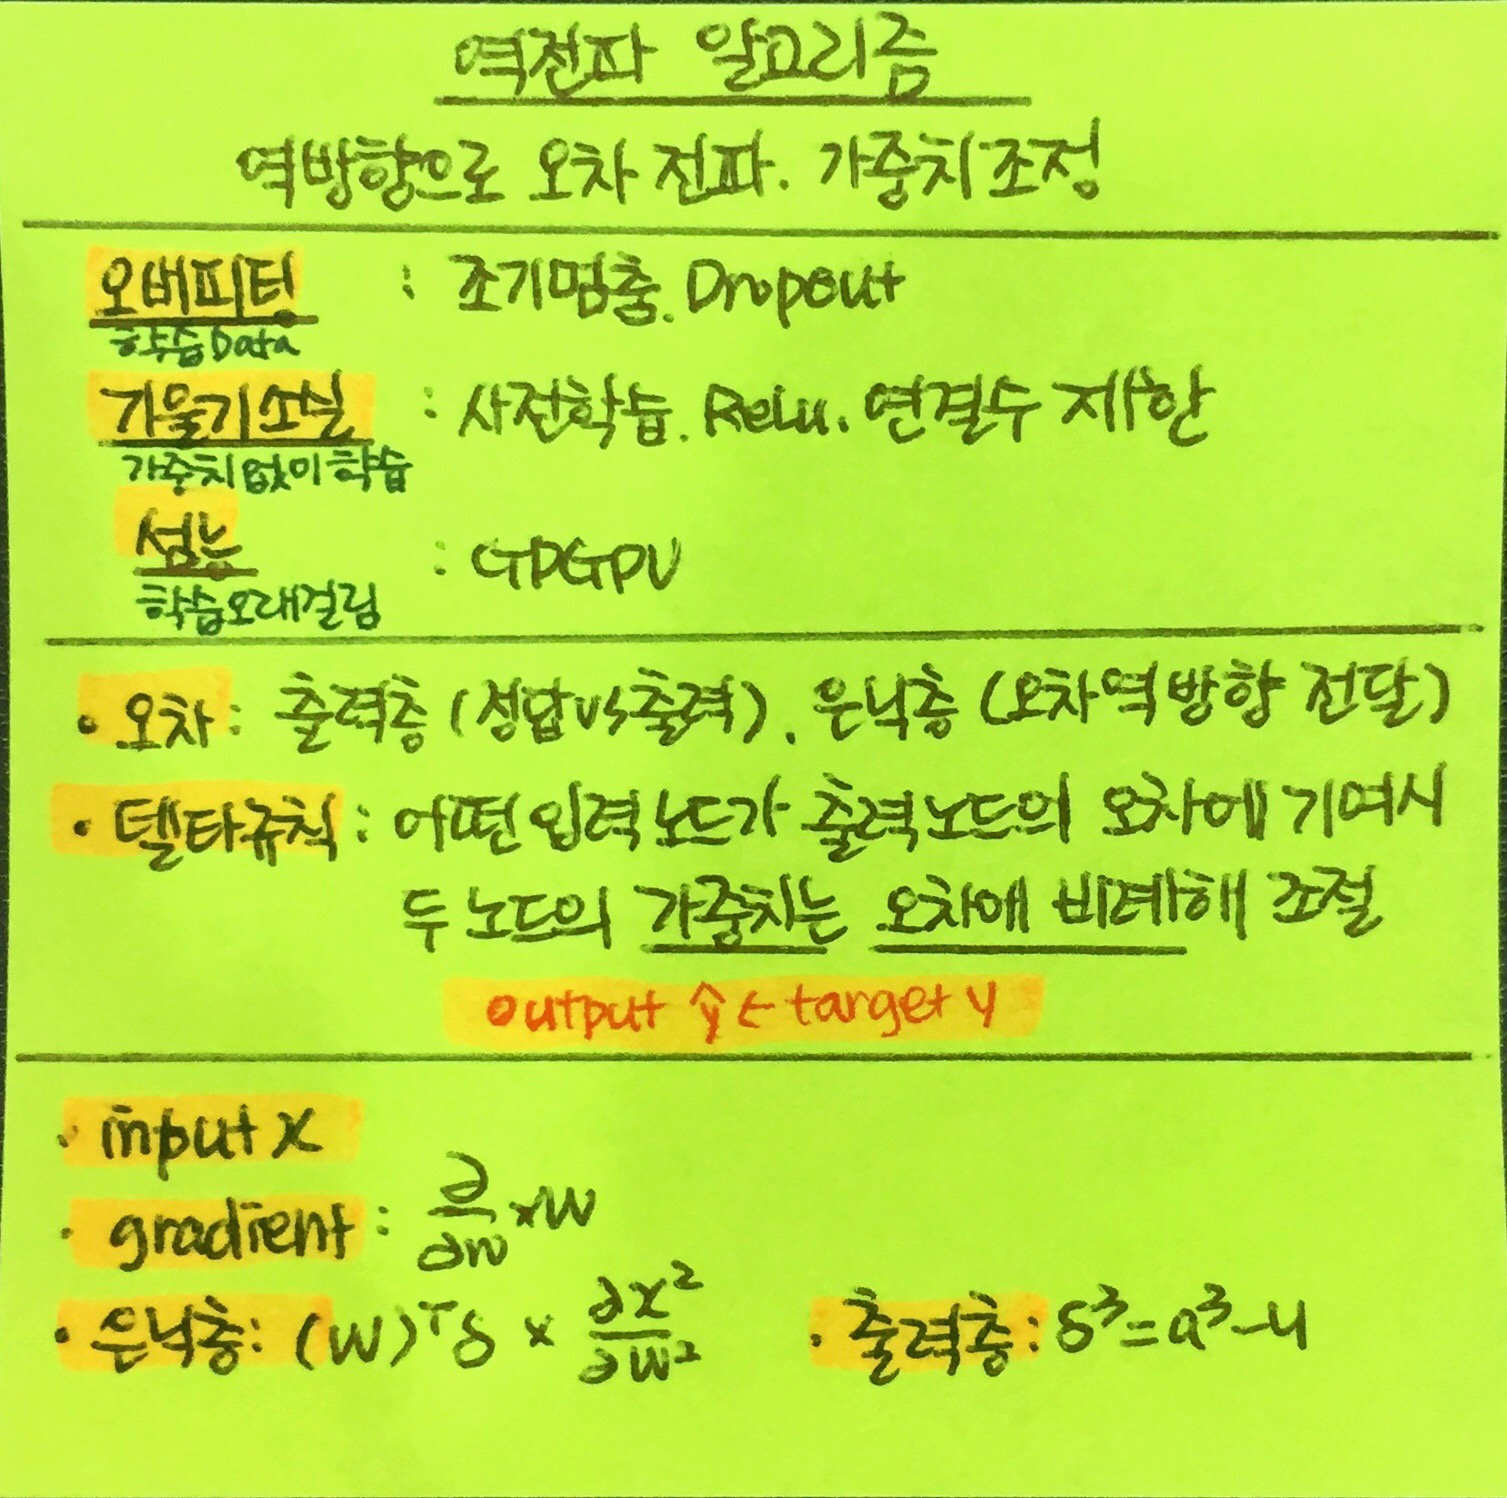 역전파 알고리즘
역방향으로 오차 전파. 가중치조정
오버피팅 : 조기멈춤. Dropout
학습Data
기울기소실 : 사전학습. ReLu. 연결수 제한
가중치없이 학습
성능 : GPGPU
학습오래걸림
• 오차 : 출력층 (정답vs출력). 은닉층 (오차역방향 전달)
• 델타규칙 : 어떤 입력노드가 출력노드의 오차에 기여시
두 노드의 가중치는 오차에 비례해 조절
output ŷ ← target y
• input x
• gradient : ∂/∂w × w
• 은닉층 : (W)ᵀδ × ∂x²/∂w² • 출력층 : δ³=a³-y